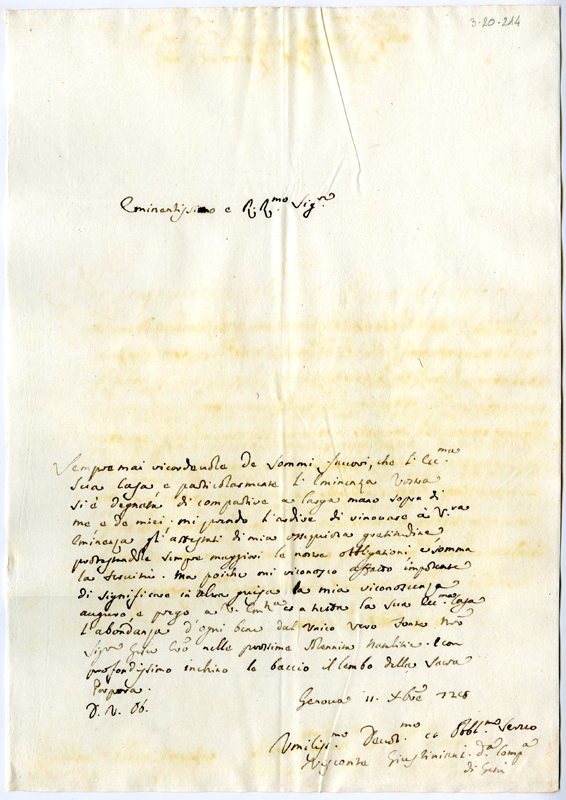 3-20-214
Eminentissimo e R. R.mo Sig.re
Sempre mai ricordevole de sommi favori, che l'Ecc.ma
Sua Casa, e particolarmente l'Eminenza Vostra
si è degnata di compartire a larga mano sopra di
me e de miei: mi prendo l'ardire di rinovare à V.ra
Eminenza gli attestati di mia ossequiosa gratitudine
protestandole sempre maggiori le nostre obbligationi, e somma
la servitù. Ma poiche mi riconosco affatto impotente
di significare in altra guisa la mia riconoscenza
auguro, e prego a V. Em.za e a tutta la sua Ecc.ma Casa
l'abondanza d'ogni bene dal Unico Vero Fonte N.ro
Sig.re Giesu Cr.o nelle prossime solennità Natalitie. E con
profondissimo inchino le baccio il lembo della sacra
Porpora.
D. V. Em.
Genova 11. Xbre 1728
Umiliss.mo Devot.mo ed Obbl.mo Servo
Visconte Giustiniani d.a Comp.a
di Giesù